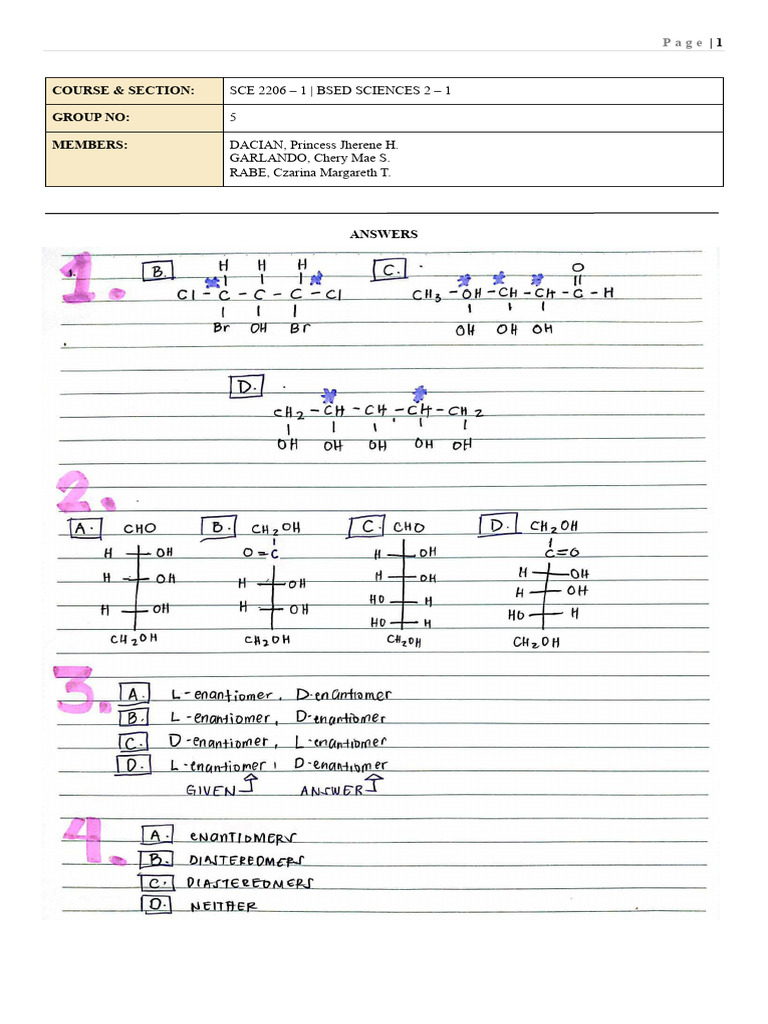 Page | 1
COURSE & SECTION: SCE 2206 – 1 | BSED SCIENCES 2 – 1
GROUP NO: 5
MEMBERS: DACIAN, Princess Jherene H.
GARLANDO, Chery Mae S.
RABE, Czarina Margareth T.
ANSWERS
1.
B.
H H H
Cl - C - C - C - Cl
Br OH Br
C.
O
CH3 - OH - CH - CH - C - H
OH OH OH
D.
CH2 - CH - CH - CH - CH2
OH OH OH OH OH
2.
A. CHO
H OH
H OH
H OH
CH2OH
B. CH2OH
O = C
H OH
H OH
CH2OH
C. CHO
H OH
H OH
HO H
HO H
CH2OH
D. CH2OH
C=O
H OH
H OH
HO H
CH2OH
3.
A. L-enantiomer, D-enantiomer
B. L-enantiomer, D-enantiomer
C. D-enantiomer, L-enantiomer
D. L-enantiomer, D-enantiomer
GIVEN ANSWER
4.
A. ENANTIOMERS
B. DIASTEREOMERS
C. DIASTEREOMERS
D. NEITHER